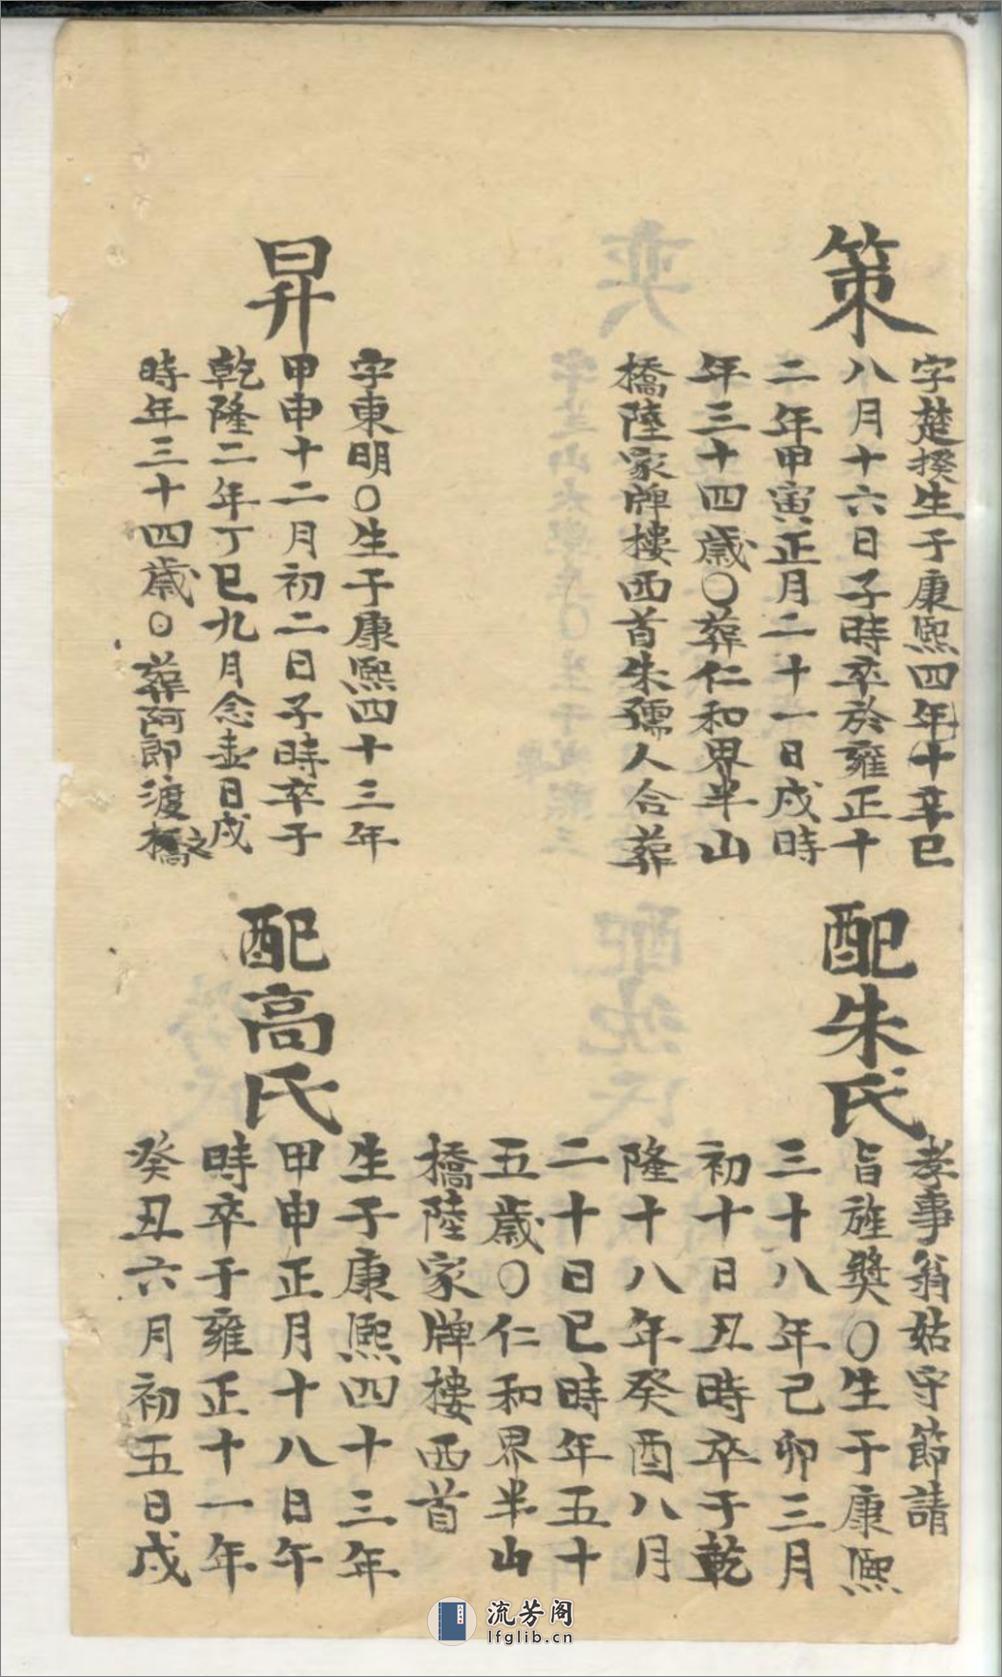 策
字楚揆生于康熙四年十辛巳
八月十六日子時卒於雍正十
二年甲寅正月二十一日戌時
年三十四歲〇葬仁和界半山
橋陸家牌樓西首朱孺人合葬
配朱氏
孝事翁姑守節請
旨旌獎〇生于康熙
三十八年己卯三月
初十日丑時卒于乾
隆十八年癸酉八月
二十日巳時年五十
五歲〇仁和界半山
橋陸家牌樓西首
昇
字東明〇生于康熙四十三年
甲申十二月初二日子時卒于
乾隆二年丁巳九月念壹日戌
時年三十四歲〇葬阿郎渡橋之
配高氏
生于康熙四十三年
甲申正月十八日午
時卒于雍正十一年
癸丑六月初五日戌
流芳阁
lfglib.cn